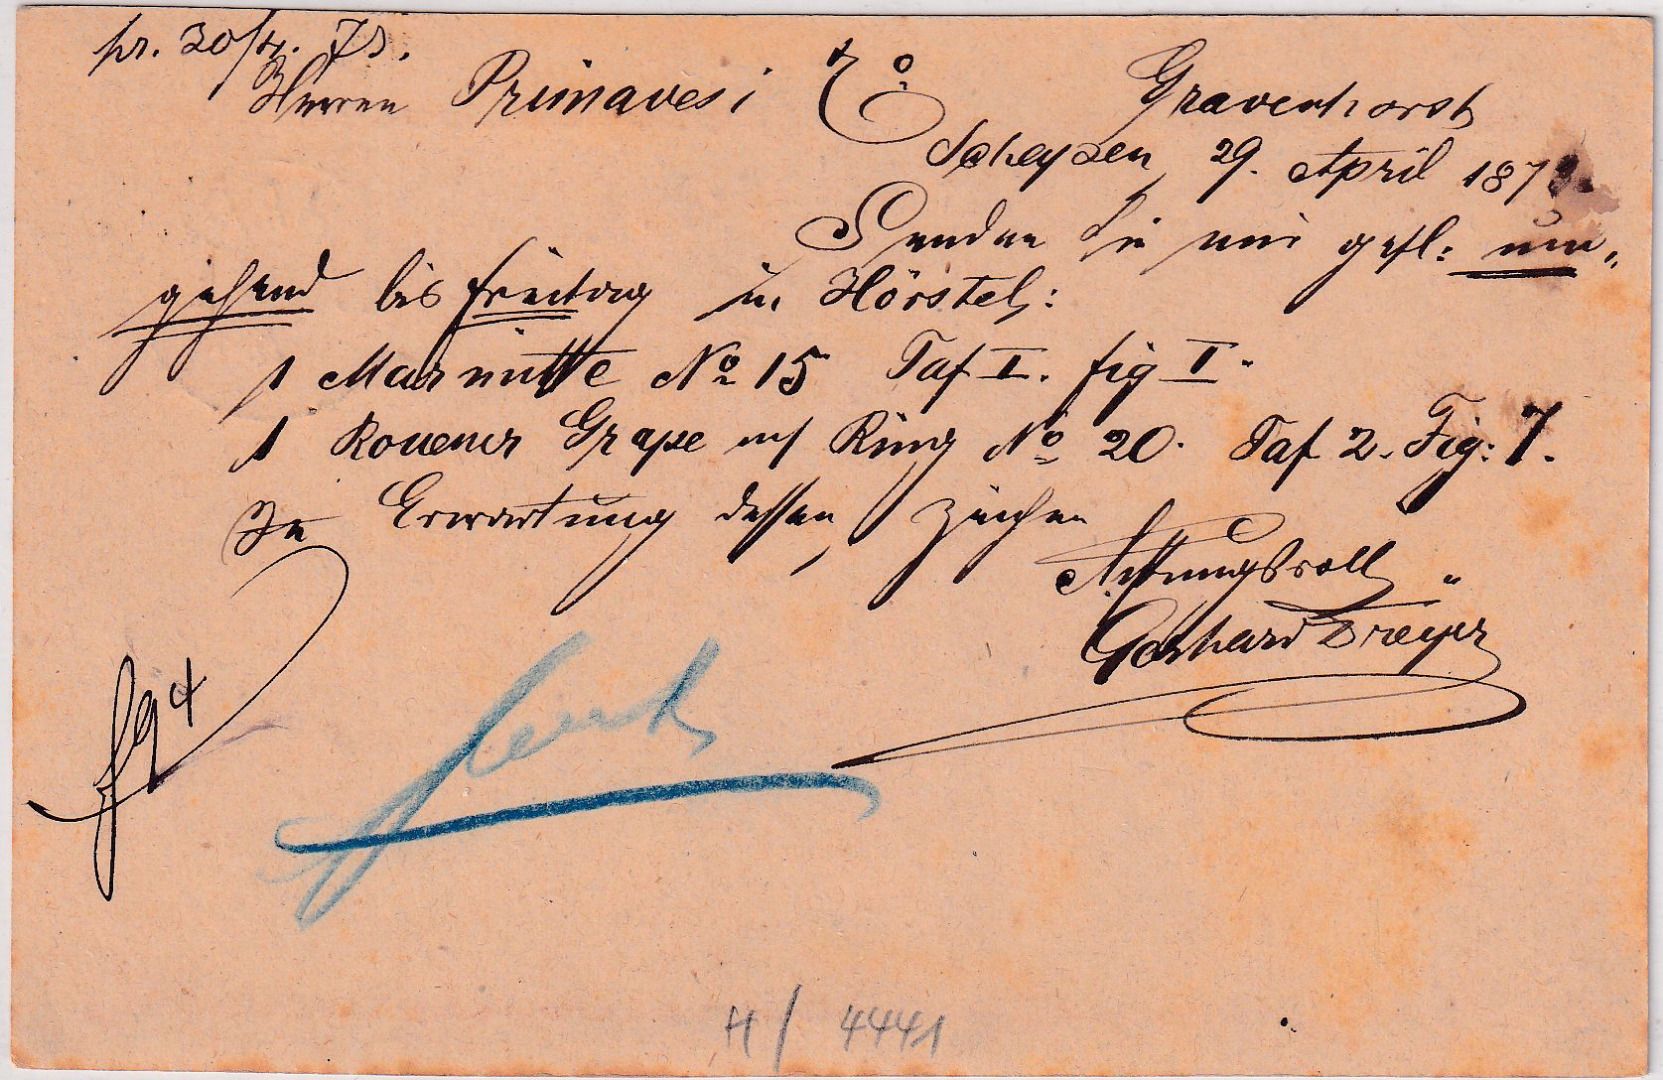 pr. 30/4. 73.
Herren Primavesi & Co. Gravenhorst
29. April 187
Senden Sie mir gefl: um„
gehend bis Freitag in Hörstel:
1 Marmitte No 15 Taf I. fig I.
1 Rouener Grape mit Ring No 20. Taf 2. Fig: 7.
In Erwartung dessen, zeichne
Achtungsvoll „
Gerhard Dreyer
H / 4441